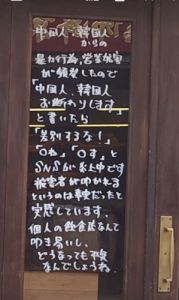 中国人、韓国人
からの
暴力行為、営業妨害
が頻発したので
「中国人、韓国人
お断わりします」
と書いたら
「差別するな!」
「〇ね」「〇す」と
SNSが炎上中です
被害者が叩かれる
というのは事実だったと
実感しています。
個人の飲食店なんて
叩き易いし、
どうなっても構わ
なんでしょうね。